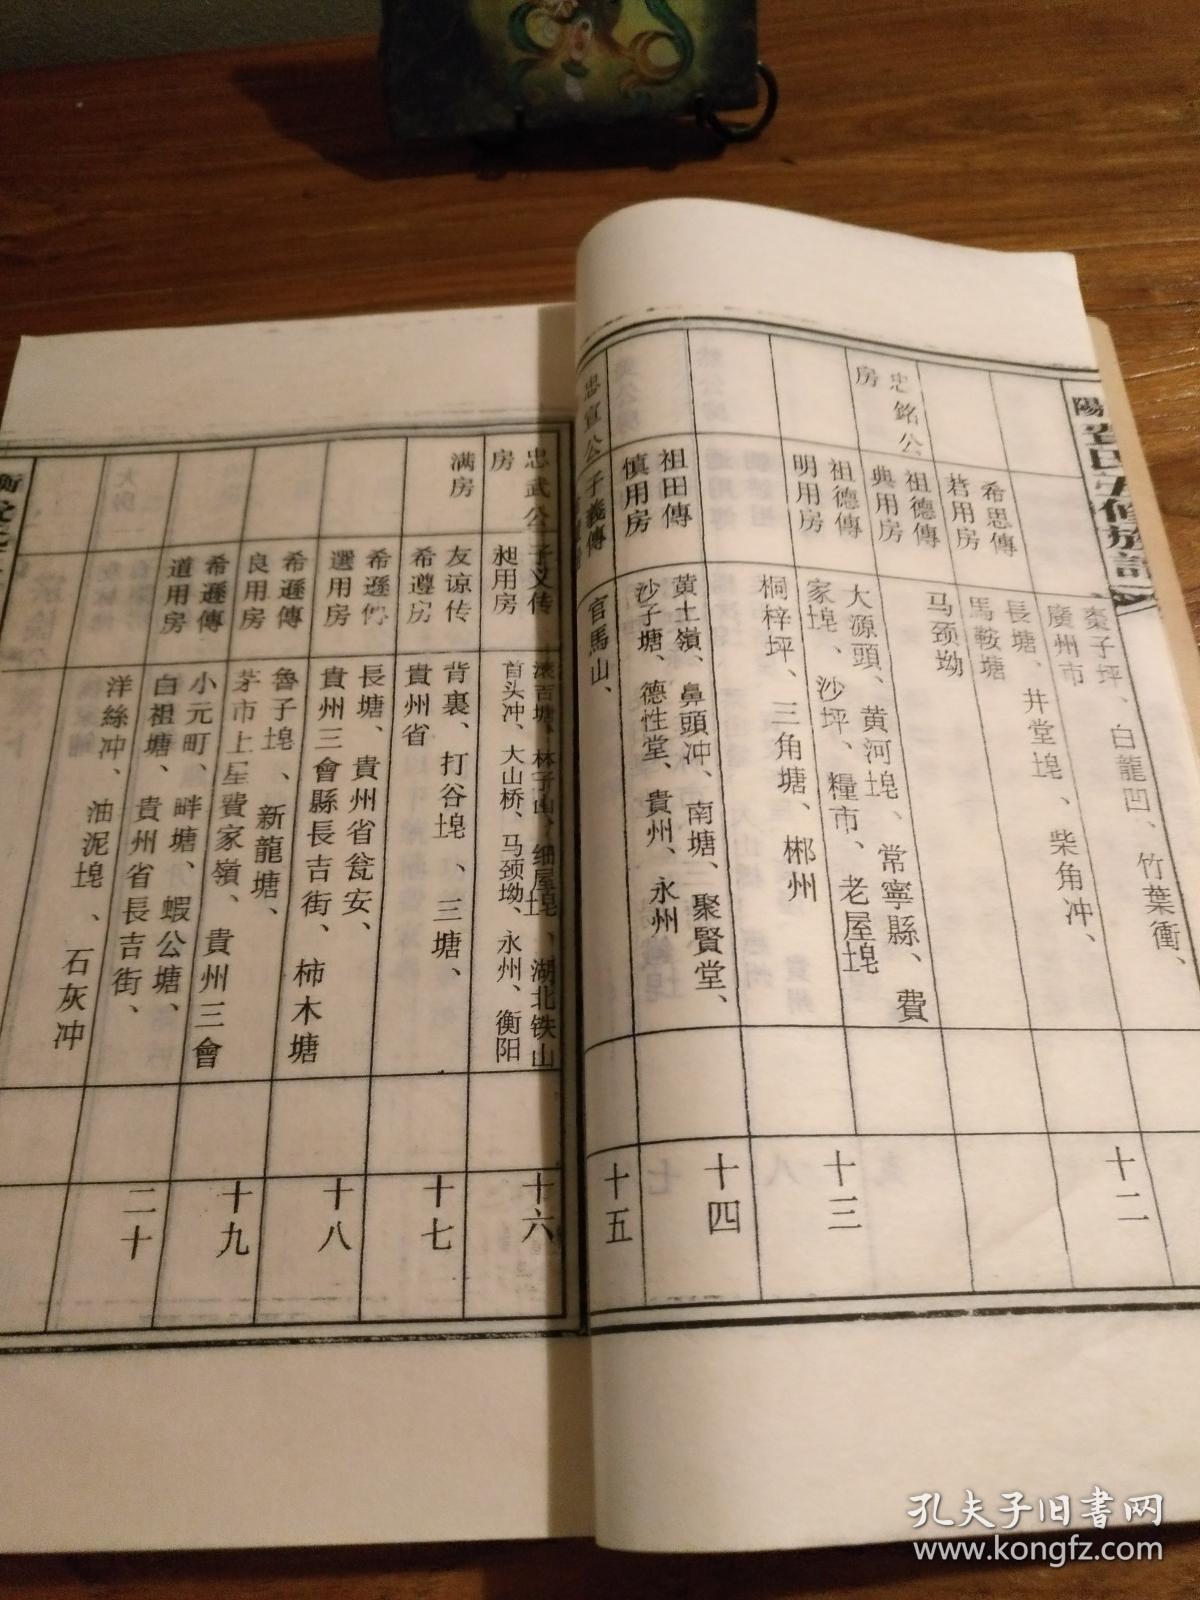 棗子坪、白龍凹、竹葉衝、
廣州市
十二
希思傳
君用房
長塘、井堂堭、柴角冲、
馬鞍塘
马颈坳
忠銘公
房
祖德傳
典用房
大源頭、黄河堭、常寧縣、費
家堭、沙坪、糧市、老屋堭
十三
祖德傳
明用房
桐梓坪、三角塘、郴州
祖田傳
慎用房
黄土嶺、鼻頭冲、南塘、聚賢堂、
沙子塘、德性堂、貴州、永州
十四
忠宣公
子義傳
官馬山、
十五
忠武公
房
子义传
昶用房
林子山、细屋堭、湖北铁山
首头冲、大山桥、马颈坳、永州、衡阳
十六
满房
友谅传
希遵房
背裏、打谷堭、三塘、
貴州省
十七
希遜傳
選用房
長塘、貴州省瓮安、
貴州三會縣長吉街、柿木塘
十八
希遜傳
良用房
魯子堭、新龍塘、
茅市上星費家嶺、貴州三會
十九
希遜傳
道用房
小元町、畔塘、蝦公塘、
白祖塘、貴州省長吉街、
洋絲冲、油泥堭、石灰冲
二十
孔夫子旧书网
www.kongfz.com